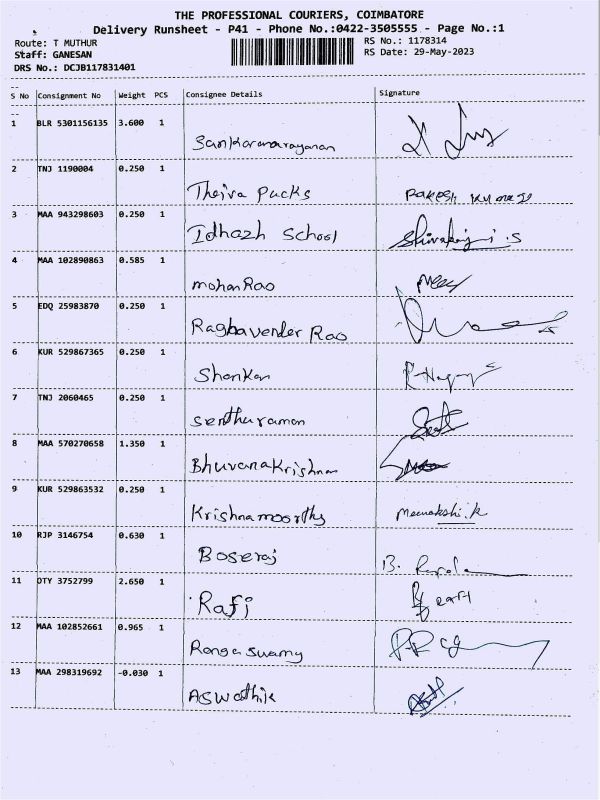 THE PROFESSIONAL COURIERS, COIMBATORE
Delivery Runsheet - P41 - Phone No.:0422-3505555 - Page No.:1
Route: T MUTHUR RS No.: 1178314
Staff: GANESAN RS Date: 29-May-2023
DRS No.: DCJB117831401
S No Consignment No Weight PCS Consignee Details Signature
1 BLR 5301156135 3.600 1 Sankaranarayanan
2 TNJ 1190004 0.250 1 Theiva Pucks
3 MAA 943298603 0.250 1 Idhazh School
4 MAA 102890863 0.585 1 mohan Rao
5 EDQ 25983870 0.250 1 Raghavender Rao
6 KUR 529867365 0.250 1 Shankar
7 TNJ 2060465 0.250 1 senthuraman
8 MAA 570270658 1.350 1 Bhuvanakrishnan
9 KUR 529863532 0.250 1 Krishnamoorthy Meenakshi.k
10 RJP 3146754 0.630 1 Boseraj B.
11 OTY 3752799 2.650 1 Rafi
12 MAA 102852661 0.965 1 Rangaswamy
13 MAA 298319692 -0.030 1 Aswathik